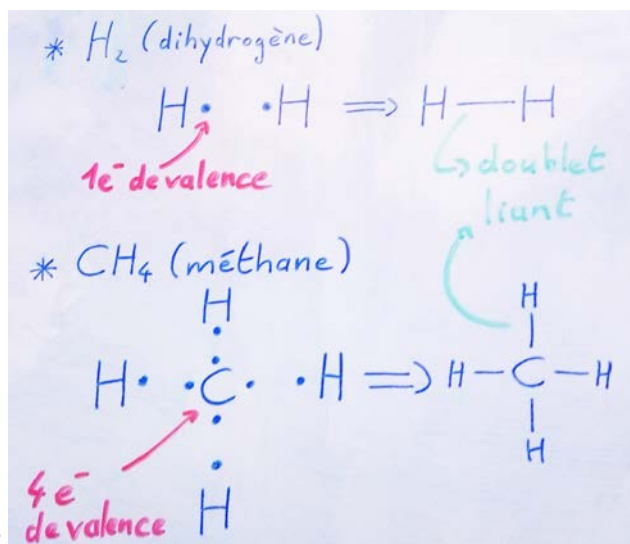 * H₂ (dihydrogène)
H• •H ⇒ H—H
1e⁻ de valence
↳ doublet
liant
* CH₄ (méthane)
H
H• •C• •H ⇒ H—C—H
H
H
H
4e⁻
de valence